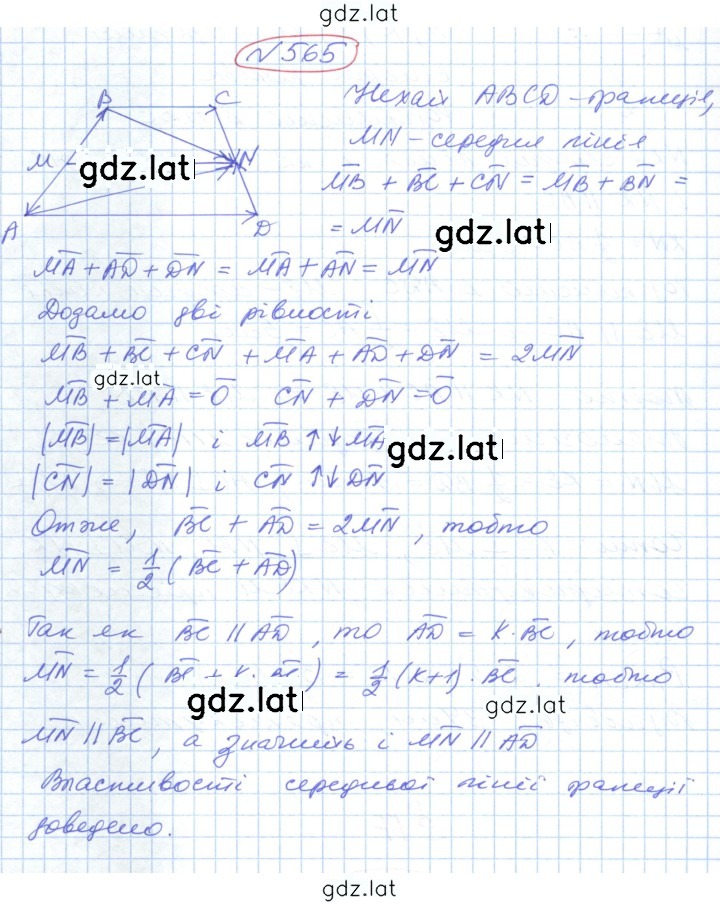 gdz.lat
№565
B C
M N
A D
Нехай ABCD – трапеція,
MN – середня лінія
M̅B̅ + B̅C̅ + C̅N̅ = M̅B̅ + B̅N̅ =
= M̅N̅
gdz.lat
gdz.lat
M̅A̅ + A̅D̅ + D̅N̅ = M̅A̅ + A̅N̅ = M̅N̅
Додамо дві рівності
M̅B̅ + B̅C̅ + C̅N̅ + M̅A̅ + A̅D̅ + D̅N̅ = 2M̅N̅
gdz.lat
M̅B̅ + M̅A̅ = 0̅ C̅N̅ + D̅N̅ = 0̅
|M̅B̅| = |M̅A̅| і M̅B̅ ↑↓ M̅A̅
gdz.lat
|C̅N̅| = |D̅N̅| і C̅N̅ ↑↓ D̅N̅
Отже, B̅C̅ + A̅D̅ = 2M̅N̅, тобто
M̅N̅ = 1/2 (B̅C̅ + A̅D̅)
Так як B̅C̅ || A̅D̅, то A̅D̅ = K · B̅C̅, тобто
M̅N̅ = 1/2 (B̅C̅ + K · B̅C̅) = 1/2 (K+1) · B̅C̅, тобто
gdz.lat
gdz.lat
M̅N̅ || B̅C̅, а значить і M̅N̅ || A̅D̅
Властивості середньої лінії трапеції
доведено.
gdz.lat